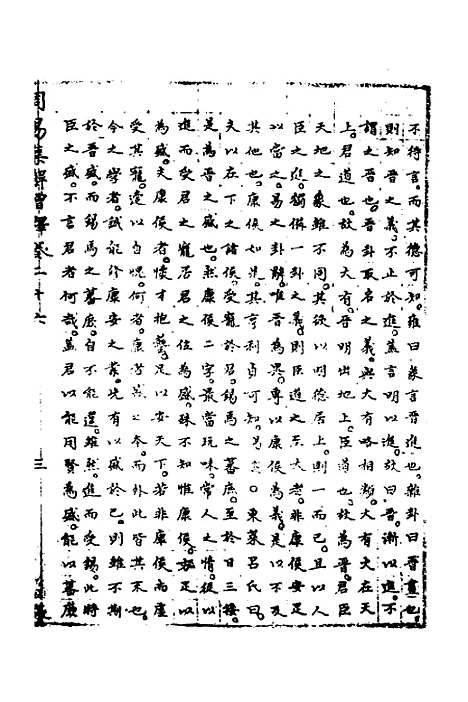 不待言而其德可知雜曰彖言晉進也雜卦曰晉晝也
則知晉之義不止於進蓋言明以進故曰晉漸以進不
謂之晉也晉卦取名之義與大有略相類大有火在天
上君道也故為大有晉明出地上臣道也故為晉君臣
天地之象雖不同其欲以明德居上則一而已且以人
臣之獨備一卦之義則臣道之至大者非康侯安足
以當之易之卦辭唯晉為異專以康侯為義是以不及
其他也康侯如是其亨利貞可知易東萊呂氏曰
夫以在下之諸侯受寵於君錫馬之蕃庶至於日三接
是為晉之盛也然康侯二字最當玩味常人之情從以
進而受君之寵居君之位為盛殊不知惟康侯故足以
為盛夫康侯者懷才抱藝足以安天下若非康侯而虛
受其寵適以自愧何者康其本而外此皆其末也
今之學者誠能修康安之業先有以盛於己則雖不期
於晉盛而錫馬之蕃庶自不能逭雖然進而受錫此時
臣之盛不言君者何哉蓋君以能用賢為盛能以蕃庶
周易集解增釋卷二十六
三